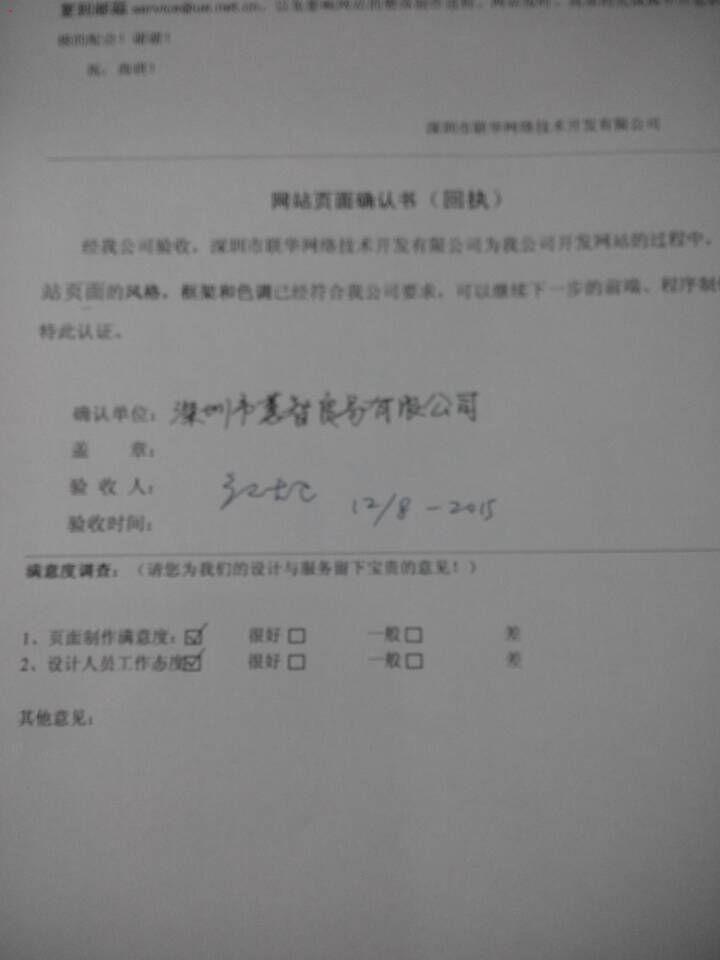 复到邮箱 service@ue.net.cn，以免影响网站的整体制作进程。网站及时、
您的配合！谢谢！
祝：商祺！
深圳市联华网络技术开发有限公司
网站页面确认书（回执）
经我公司验收，深圳市联华网络技术开发有限公司为我公司开发网站的过程中，
站页面的风格，框架和色调已经符合我公司要求，可以继续下一步的前端、程序制
特此认证。
确认单位：深圳市慧智贸易有限公司
盖 章：
验 收 人：
验收时间： 12/8-2015
满意度调查：（请您为我们的设计与服务留下宝贵的意见！）
1、页面制作满意度：☑ 很好 □ 一般 □ 差
2、设计人员工作态度☑ 很好 □ 一般 □ 差
其他意见：